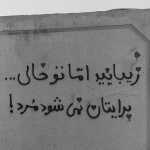 زیبایید اما تو خالی...
برایتان نمی شود مُرد!